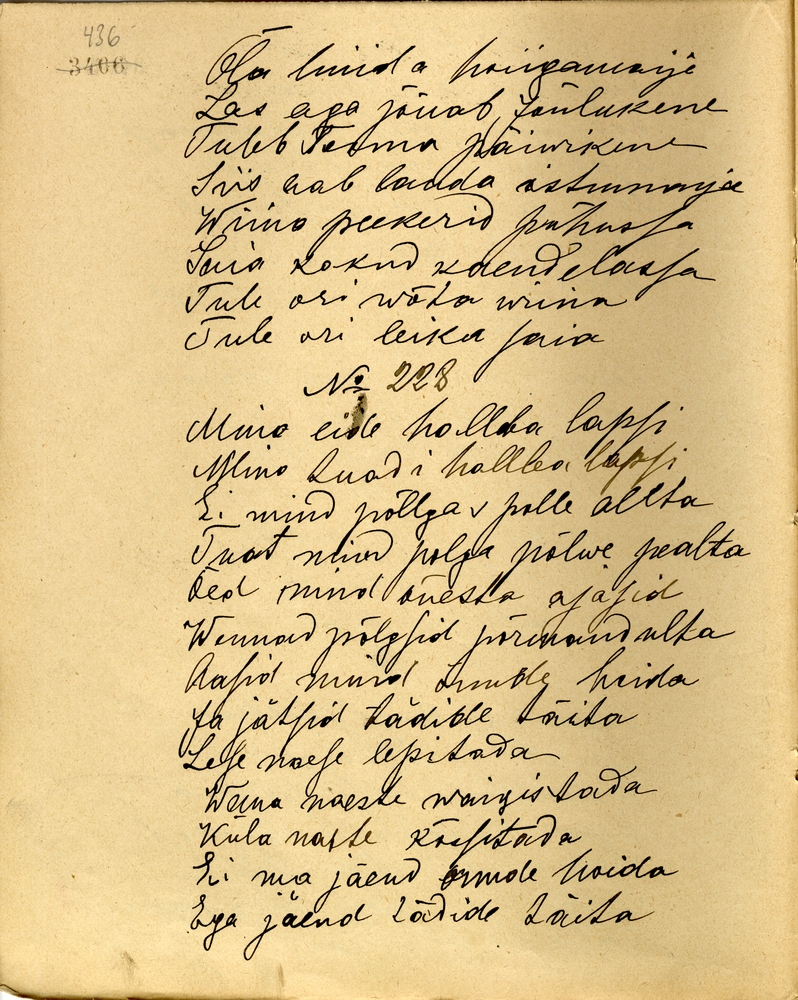 436
3466
Õla luida hoiigamaije
Las aga jõuab Jõulukene
Tuleb Tooma päiwikene
Siis aab lauda istumaije
Wiina peekerid puhussa
Saia kokud kaendelassa
Tule ori wõta wiina
Tule ori leika saia
No 228
Mino eide hallba lapsi
Mino taadi hallba lapsi
Ei mind põllgas polle allta
Taat mind polga põlwe pealta
Õed mind õuesta ajasid
Wennad põlgsid põrmandulta
Aasid mind õrnude hoida
Ja jätsid tädide täita
Lese naese lepitada
Wana naeste waigistada
Küla naste kõssitada
Ei ma jäend õrnude hoida
Ega jäend tädide täita